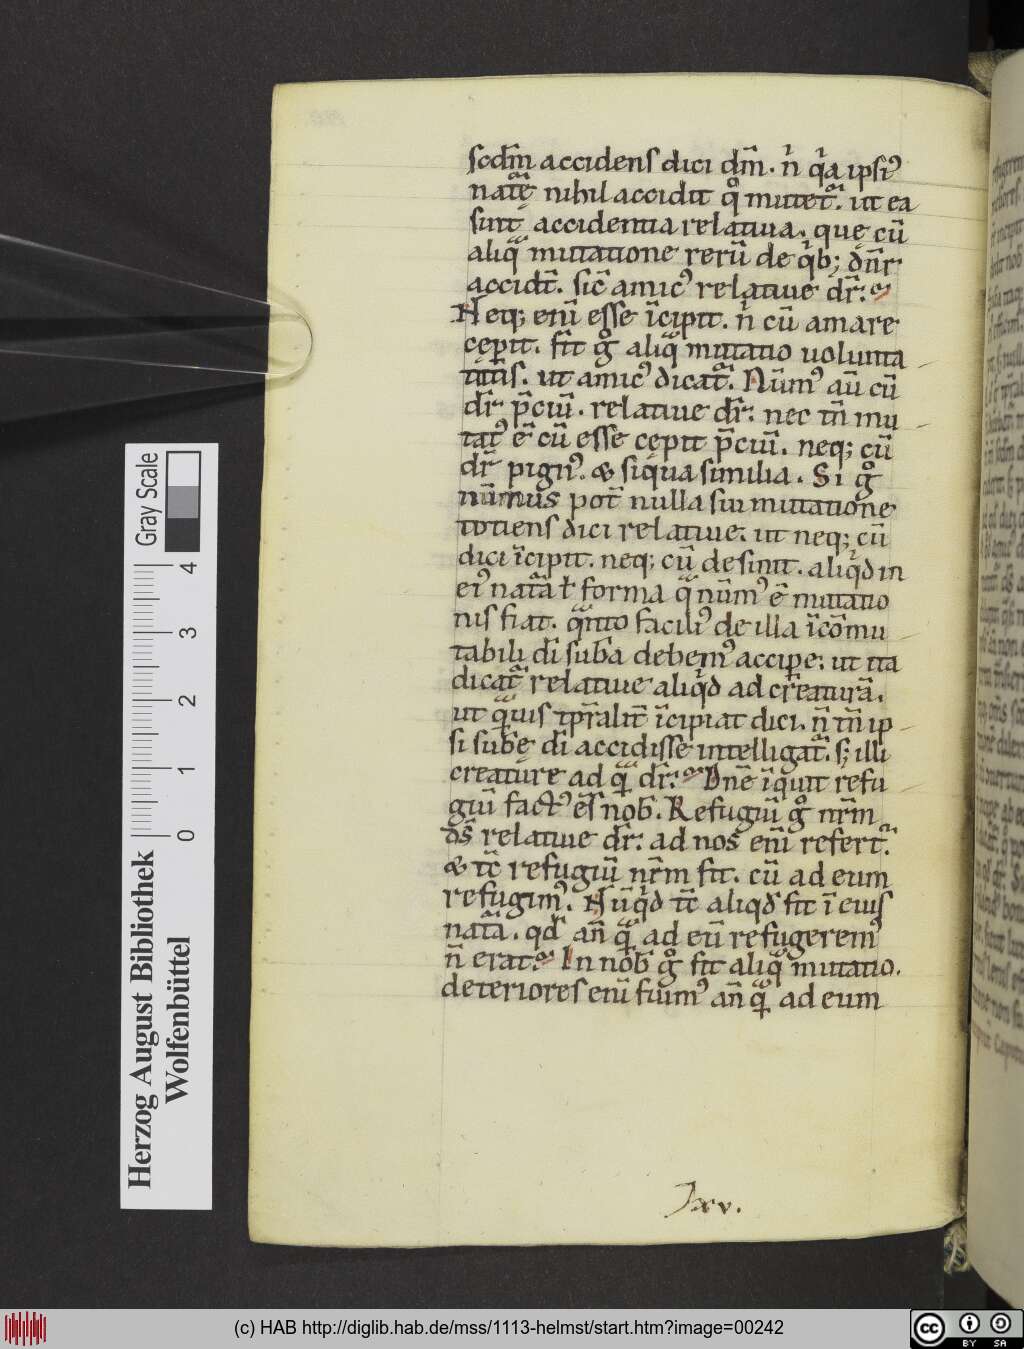 scdm̄ accidens dici dm̄. n̄ qͥa ipsiꝰ
natͣę nihil accidit qͦ mutet᷑. ut ea
sint accidentia relatiua. quę cū
aliqͣ mutatione rerū de qͥb; dn̄r
accidt̄. sic̄ amicꝰ relatiue dr̄.
Neq; enī esse īcipit. nͥ cū amare
cęperit. fit gͦ aliqͣ mutatio uolunta
titis. ut amicꝰ dicat᷑. Nūmꝰ aū cū
dr̄ p̄ciū. relatiue dr̄. nec tn̄ mu
tatꝰ ē cū esse cępit p̄ciū. neq; cū
dr̄ pignꝰ. & siqua similia. Si gͦ
nūmus potͭ nulla sui mutatione
totiens dici relatiue. ut neq; cū
dici īcipit. neq; cū desinit. aliqͥd in
eiꝰ natͣa ł forma qͣ nūmꝰ ē mutatio
nis fiat. qͣnto faciliꝰ de illa īcōmu
tabili dī suba debemꝰ accipe. ut ita
dicat᷑ relatiue aliqͥd ad creaturā.
ut qͣuis tpr̄alit̄ īcipiat dici. n̄ tn̄ ip
si subę dī accidisse intelligat᷑. s; illi
creaturę ad qͣ dr̄. Dn̄e īquit refu
giū factꝰ es nob. Refugiū gͦ nr̄m
ds̄ relatiue dr̄. ad nos enī refert᷑.
& tc̄ refugiū nr̄m fit. cū ad eum
refugimꝰ. Nūqͥd tc̄ aliqd fit ī eius
natͣa. qd an̄ qͣ ad eū refugeremꝰ
n̄ erat. In nob gͦ fit aliqͣ mutatio.
deteriores enī fuimꝰ an̄ qͣ ad eum
Jxv.
Gray Scale
0 1 2 3 4
Herzog August Bibliothek
Wolfenbüttel
(c) HAB http://diglib.hab.de/mss/1113-helmst/start.htm?image=00242
cc BY SA